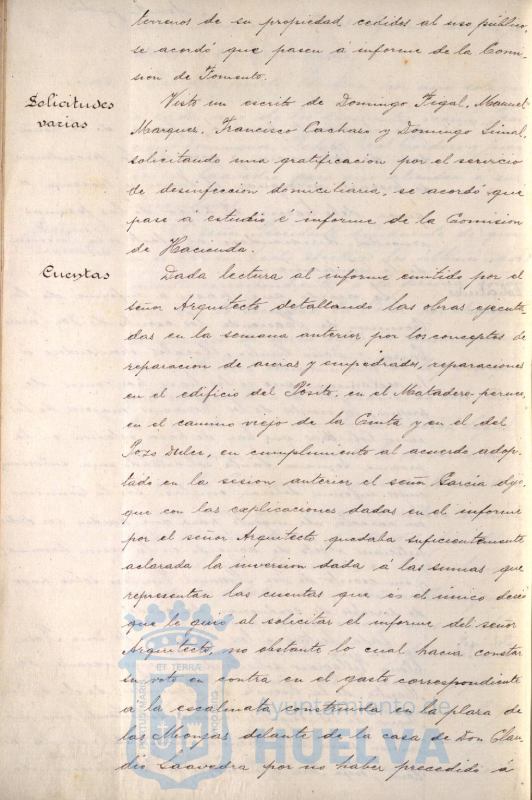 terrenos de su propiedad cedidos al uso público,
se acordó que pasen á informe de la Comi-
sion de Fomento.
Solicitudes
varias
Visto un escrito de Domingo Figal, Manuel
Marquez, Francisco Cachazo y Domingo
solicitando una gratificacion por el servicio
de desinfeccion domiciliaria, se acordó que
pase á estudio é informe de la Comision
de Hacienda.
Cuentas
Dada lectura al informe emitido por el
señor Arquitecto detallando las obras ejecuta
das en la semana anterior por los conceptos de
reparacion de aceras y empedrados, reparaciones
en el edificio del Pósito, en el Matadero,
en el camino viejo de la Cinta y en el del
Pozo Dulce, en cumplimiento al acuerdo adop-
tado en la sesion anterior el señor García dijo:
que con las explicaciones dadas en el informe
por el señor Arquitecto quedaba suficientemente
aclarada la inversion dada á las sumas que
representan las cuentas que es el único deseo
que le guió al solicitar el informe del señor
Arquitecto, no obstante lo cual hacia constar
su voto en contra en el gasto correspondiente
á la escalinata construida en la plaza de
las Monjas delante de la casa de Don Clau
dio Saavedra por no haber precedido á
Ayuntamiento de
HUELVA